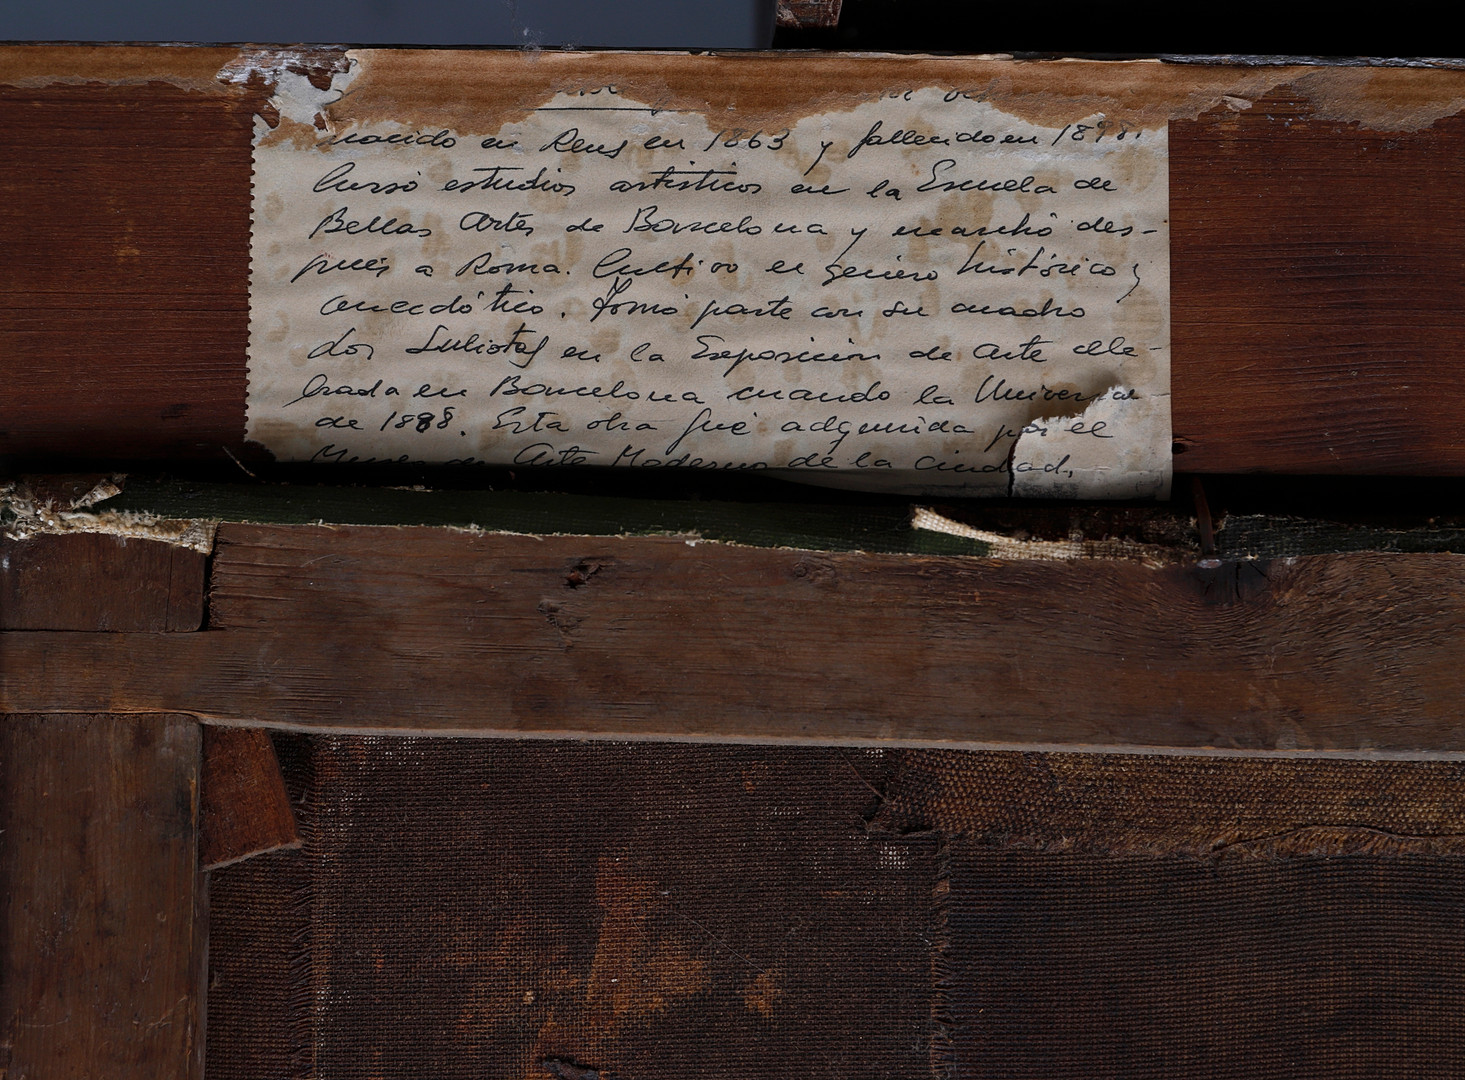 nacido en Reus en 1863 y fallecido en 1898.
Cursó estudios artisticos en la Escuela de
Bellas Artes de Barcelona y marchó des-
pués a Roma. Cultivo el genero histórico y
anecdótico. Tomó parte con su cuadro
Los Suliotas en la Exposicion de Arte cele-
brada en Barcelona cuando la Universal
de 1888. Esta obra fué adquirida por el
Museo de Arte Moderno de la ciudad,